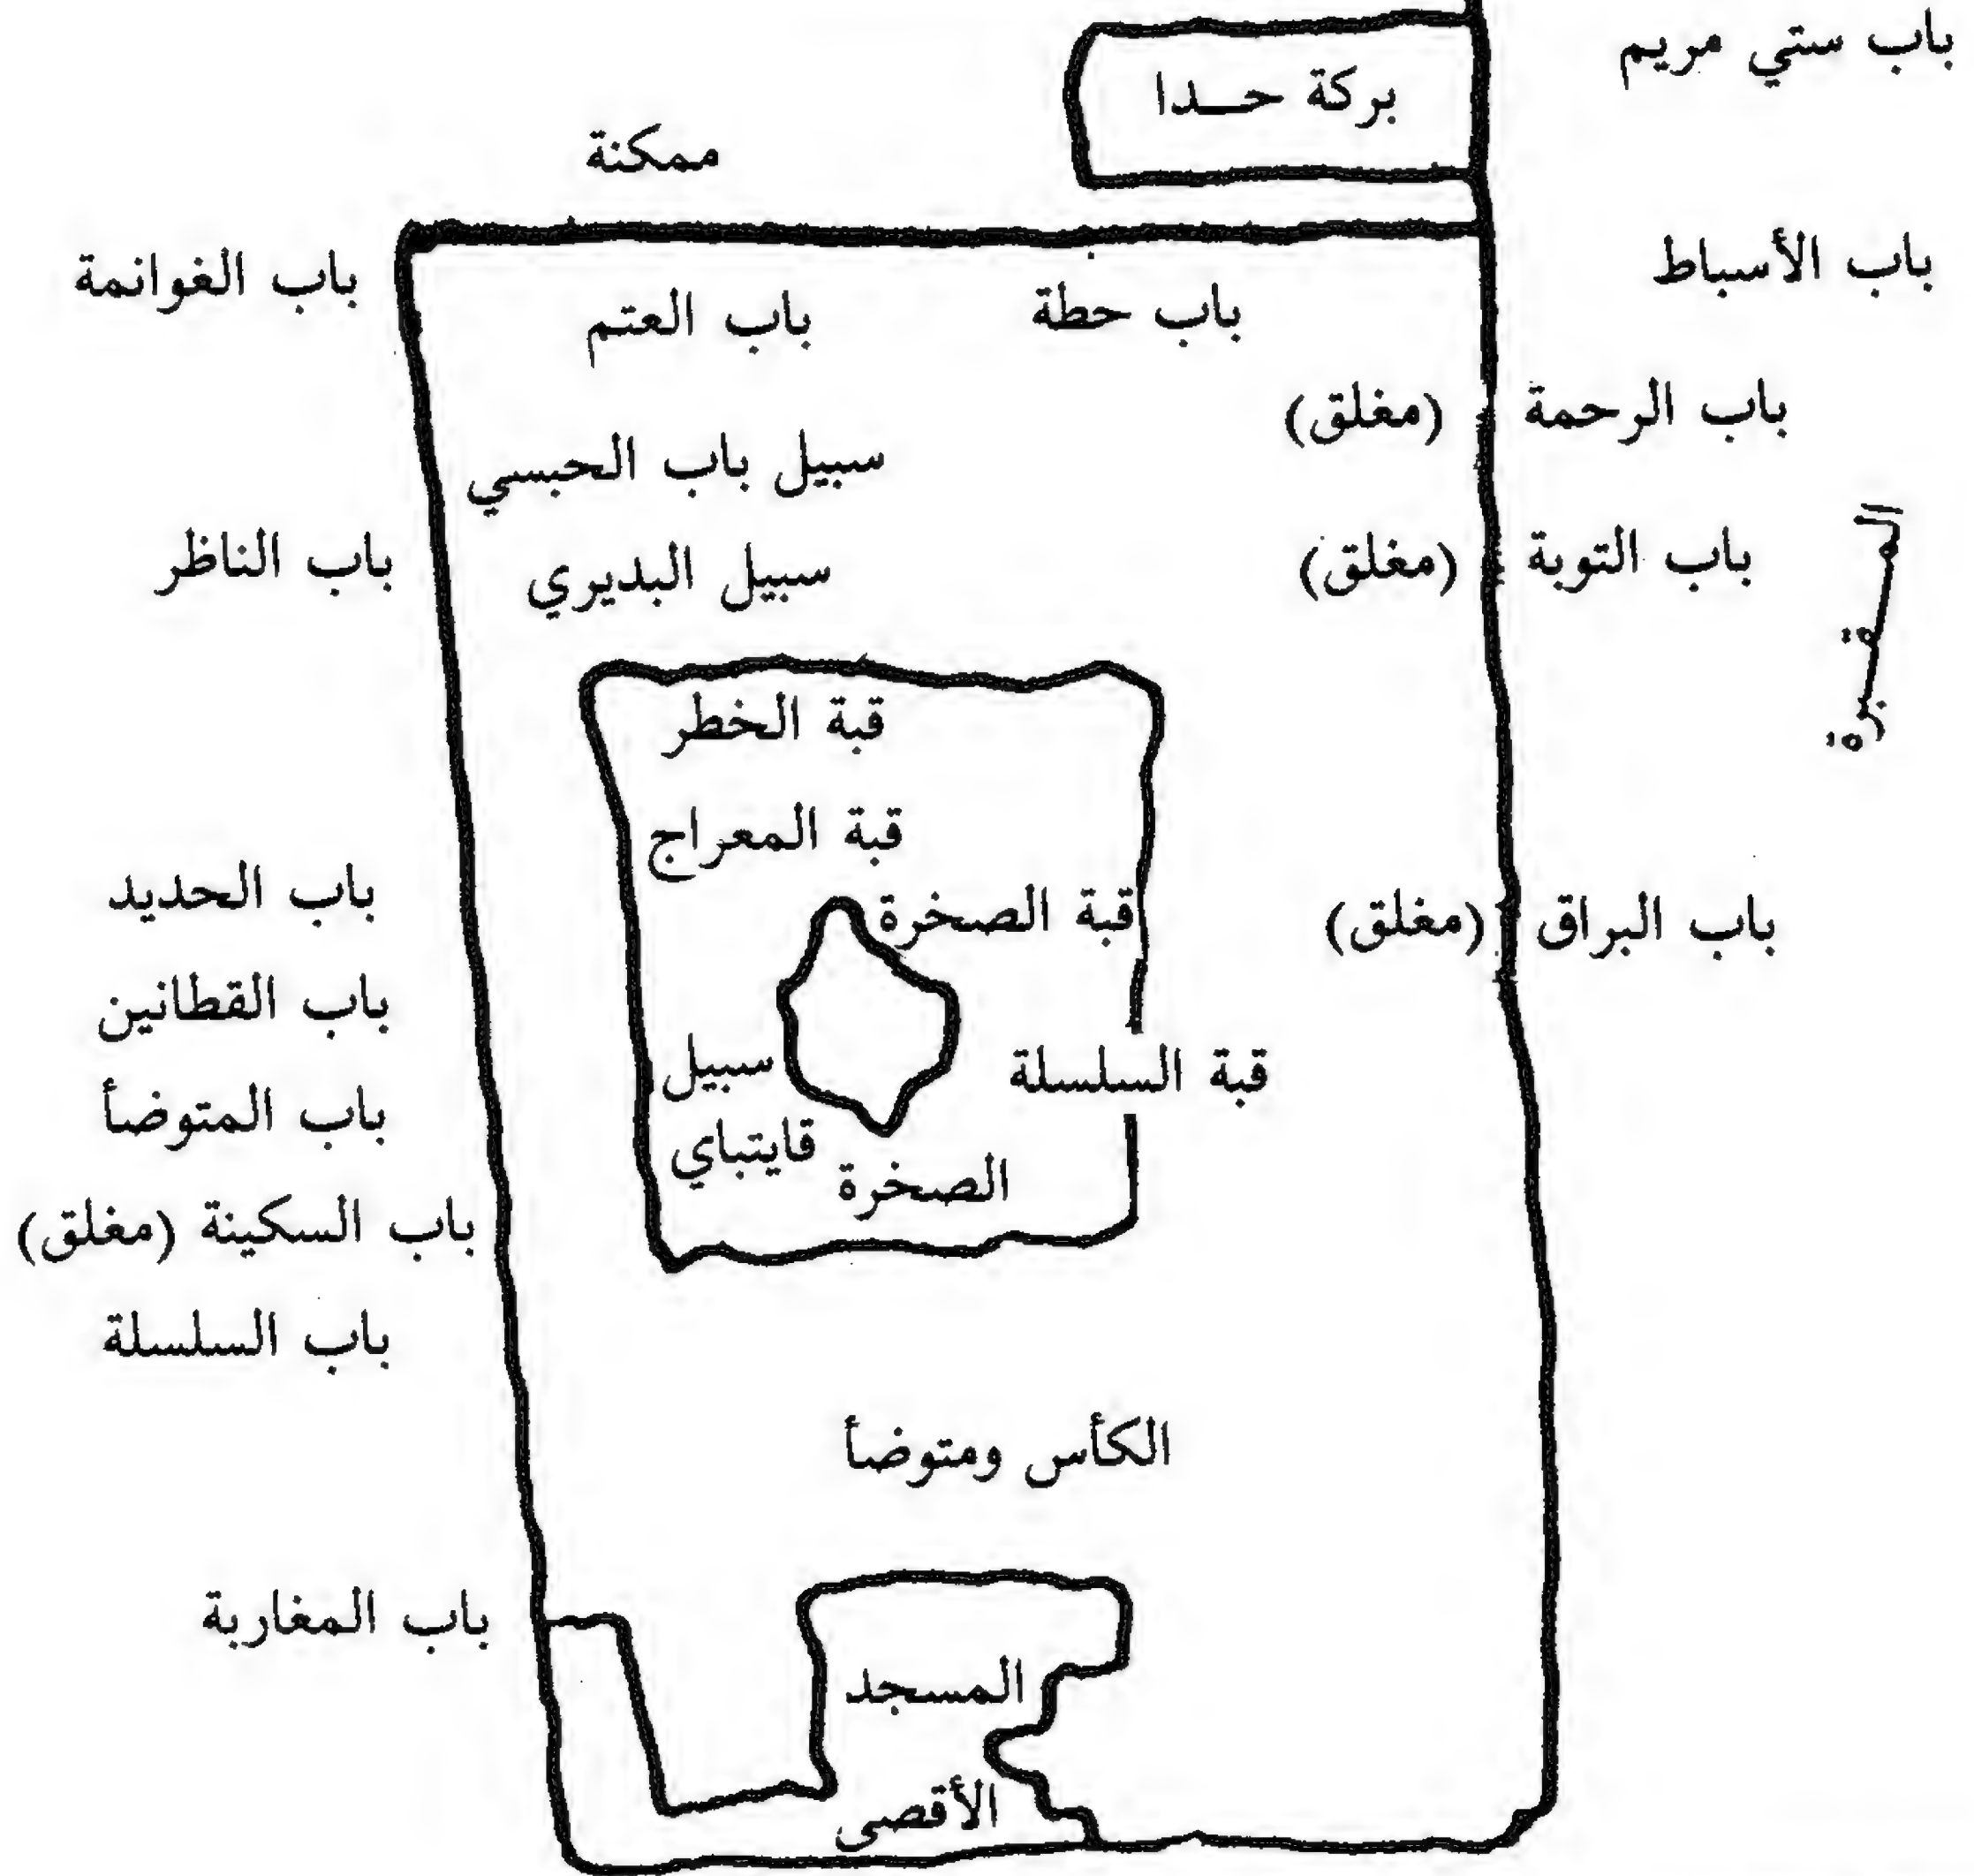 باب ستي مريم
بركة حــدا
ممكنة
باب الأسباط
باب الغوانمة
باب حطة
باب العتم
باب الرحمة (مغلق)
سبيل باب الحبسي
المقبرة
باب التوبة (مغلق)
سبيل البديري
باب الناظر
قبة الخطر
قبة المعراج
قبة الصخرة
باب البراق (مغلق)
باب الحديد
باب القطانين
قبة السلسلة
سبيل
قايتباي
الصخرة
باب المتوضأ
باب السكينة (مغلق)
باب السلسلة
الكأس ومتوضأ
باب المغاربة
المسجد
الأقصى